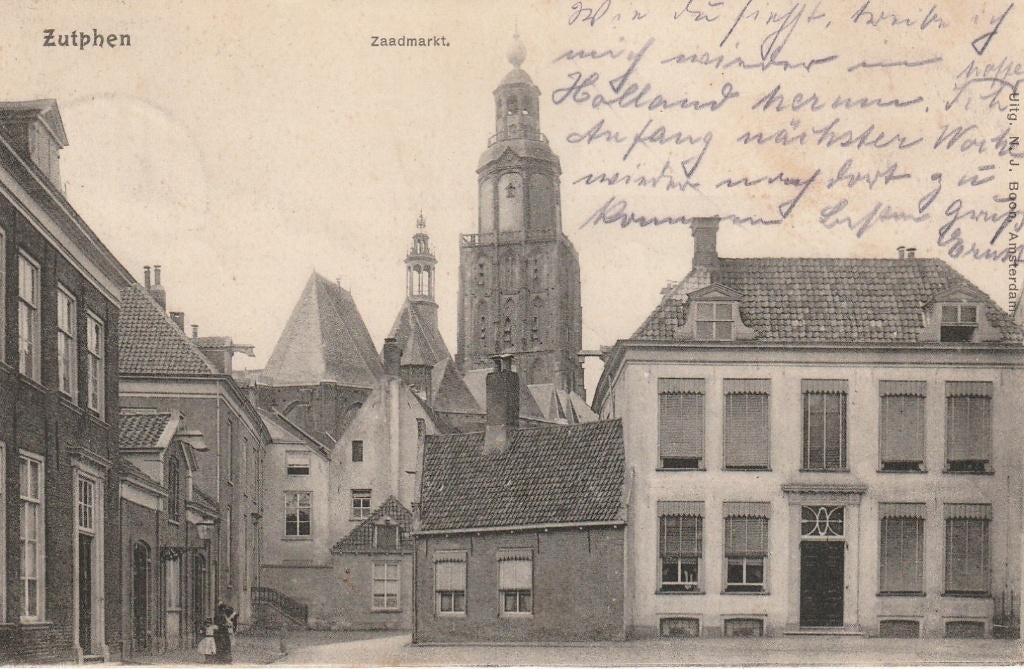 Zutphen
Zaadmarkt.
Wie du siehst, treibe ich
mich wieder in
Holland herum. Ich hoffe
Anfang nächster Woche
wieder nach dort zu
kommen Besten Gruß
Ernst
Uitg. N. J. Boon, Amsterdam